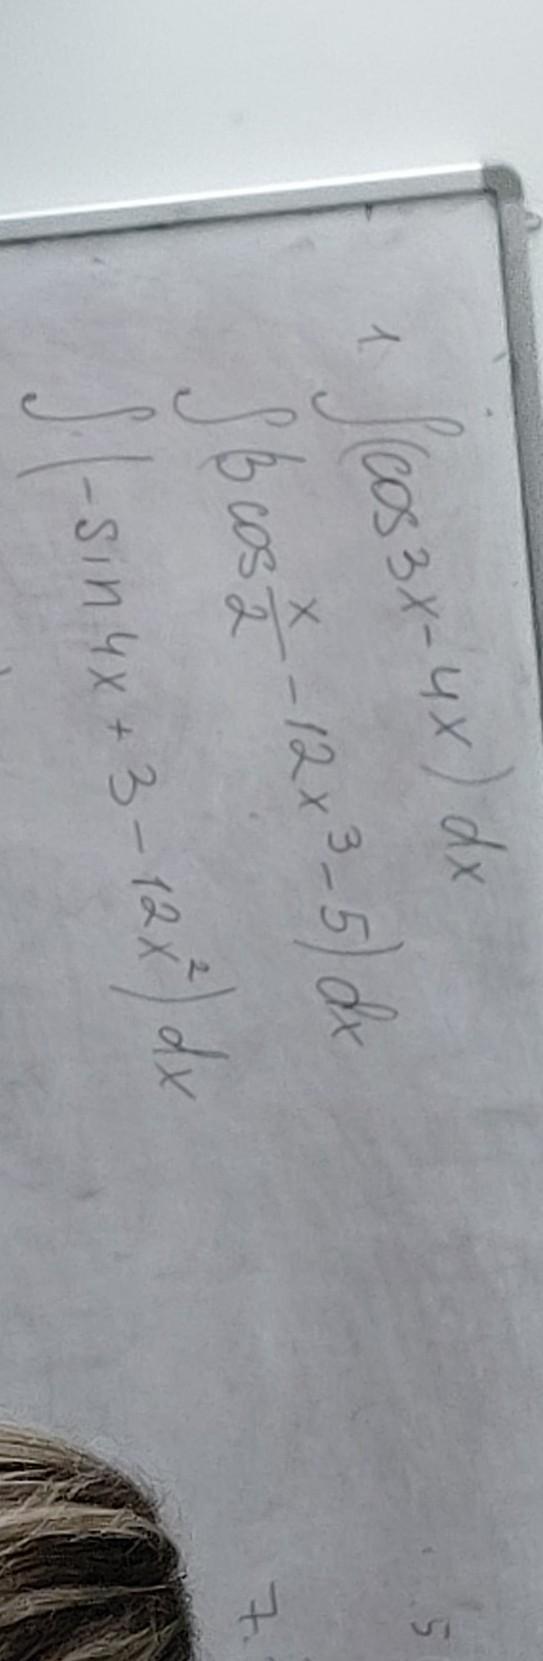 1. ∫(cos 3x - 4x) dx
∫(3 cos x/2 - 12x³ - 5) dx
∫(-sin 4x + 3 - 12x²) dx
5
7.